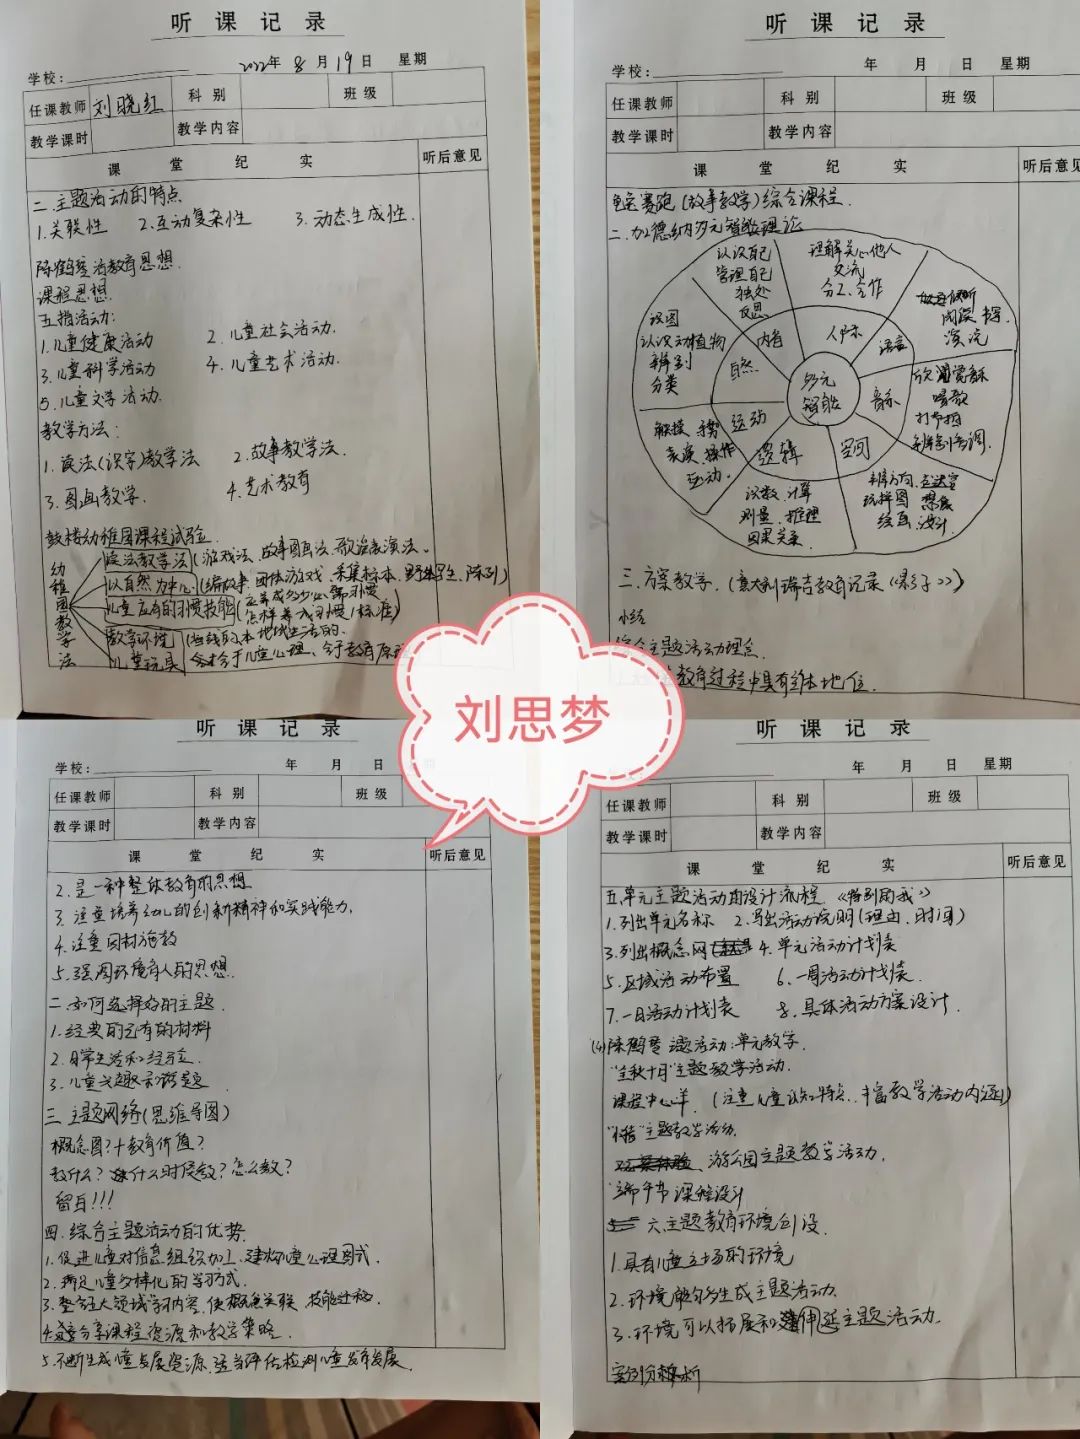 听课记录
学校： 2022年 8月19日 星期
任课教师 刘晓红 科别 班级
教学课时 教学内容
课堂纪实 听后意见
二.主题活动的特点
1.关联性 2.互动复杂性 3.动态生成性.
陈鹤琴活教育思想.
课程思想.
五指活动:
1.儿童健康活动 2.儿童社会活动.
3.儿童科学活动 4.儿童艺术活动.
5.儿童文学活动.
教学方法:
1.读法(识字)教学法 2.故事教学法.
3.图画教学. 4.艺术教育
鼓楼幼稚园课程试验.
幼稚园教学法
读法教学法(游戏法、故事图画法、歌谣表演法。
以自然为中心(编故事、团体游戏、采集标本、野外写生、陈列)
儿童应有的习惯技能(应养成多少心佛习惯
怎样养成习惯/标准)
教学环境
儿童玩具 合于儿童心理、合于教育原理
听课记录
学校： 年 月 日 星期
任课教师 科别 班级
教学课时 教学内容
课堂纪实 听后意见
龟兔赛跑(故事教学)综合课程.
二.加德纳多元智能理论
多元智能
内省
认识自己
管理自己
独处
反思
人际
理解关心他人
交流
分工、合作
语言
阅读 书写.
演说
音乐
欣赏音乐
唱歌
打节拍
辨别音调.
空间
辨方向.走迷宫
玩拼图 想象
绘画.设计.
逻辑
识数.计算
测量.推理
因果关系.
运动
触摸 手势
表演、操作
运动.
自然
认识动植物
辨别
分类
三.方案教学.(意大利瑞吉教育记录《影子》)
小结
综合主题活动理念.
教育过程中具有主体地位.
听课记录
学校： 年 月 日
任课教师 科别 班级
教学课时 教学内容
课堂纪实 听后意见
2.是一种整体教育的思想
3.注重培养幼儿的创新精神和实践能力.
4.注重因材施教
5.强调环境育人的思想.
二.如何选择好的主题
1.经典的已有的材料
2.日常生活和经验.
3.儿童兴趣和话题
三 主题网络(思维导图)
概念图?+教育价值?
教什么?什么时候教?怎么教?
留白!!!
四.综合主题活动的优势.
1.促进儿童对信息组织加工、建构儿童心理图式.
2.满足儿童多样化的学习方式.
3.整合五大领域学习内容,使概念关联 技能迁移.
4.分享课程资源和教学策略.
5.不断生成儿童发展资源.适当评估检测儿童发展.
听课记录
年 月 日 星期
任课教师 科别 班级
教学课时 教学内容
课堂纪实 听后意见
五.单元主题活动的设计流程.《特别的我》
1.列出单元名称 2.写出活动说明(理由、时间)
3.列出概念网 4.单元活动计划表
5.区域活动布置 6.一周活动计划表.
7.一日活动计划表 8.具体活动方案设计.
陈鹤琴 主题活动:单元教学.
"金秋十月"主题教学活动.
课程中心羊.(注重儿童认知特点.丰富教学活动内涵)
主题教学活动.
游公园主题教学活动.
端午节课程设计
六.主题教育环境创设
1.具有儿童立场的环境
2.环境能够生成主题活动.
3.环境可以拓展和延伸主题活动.
案例分析
刘思梦